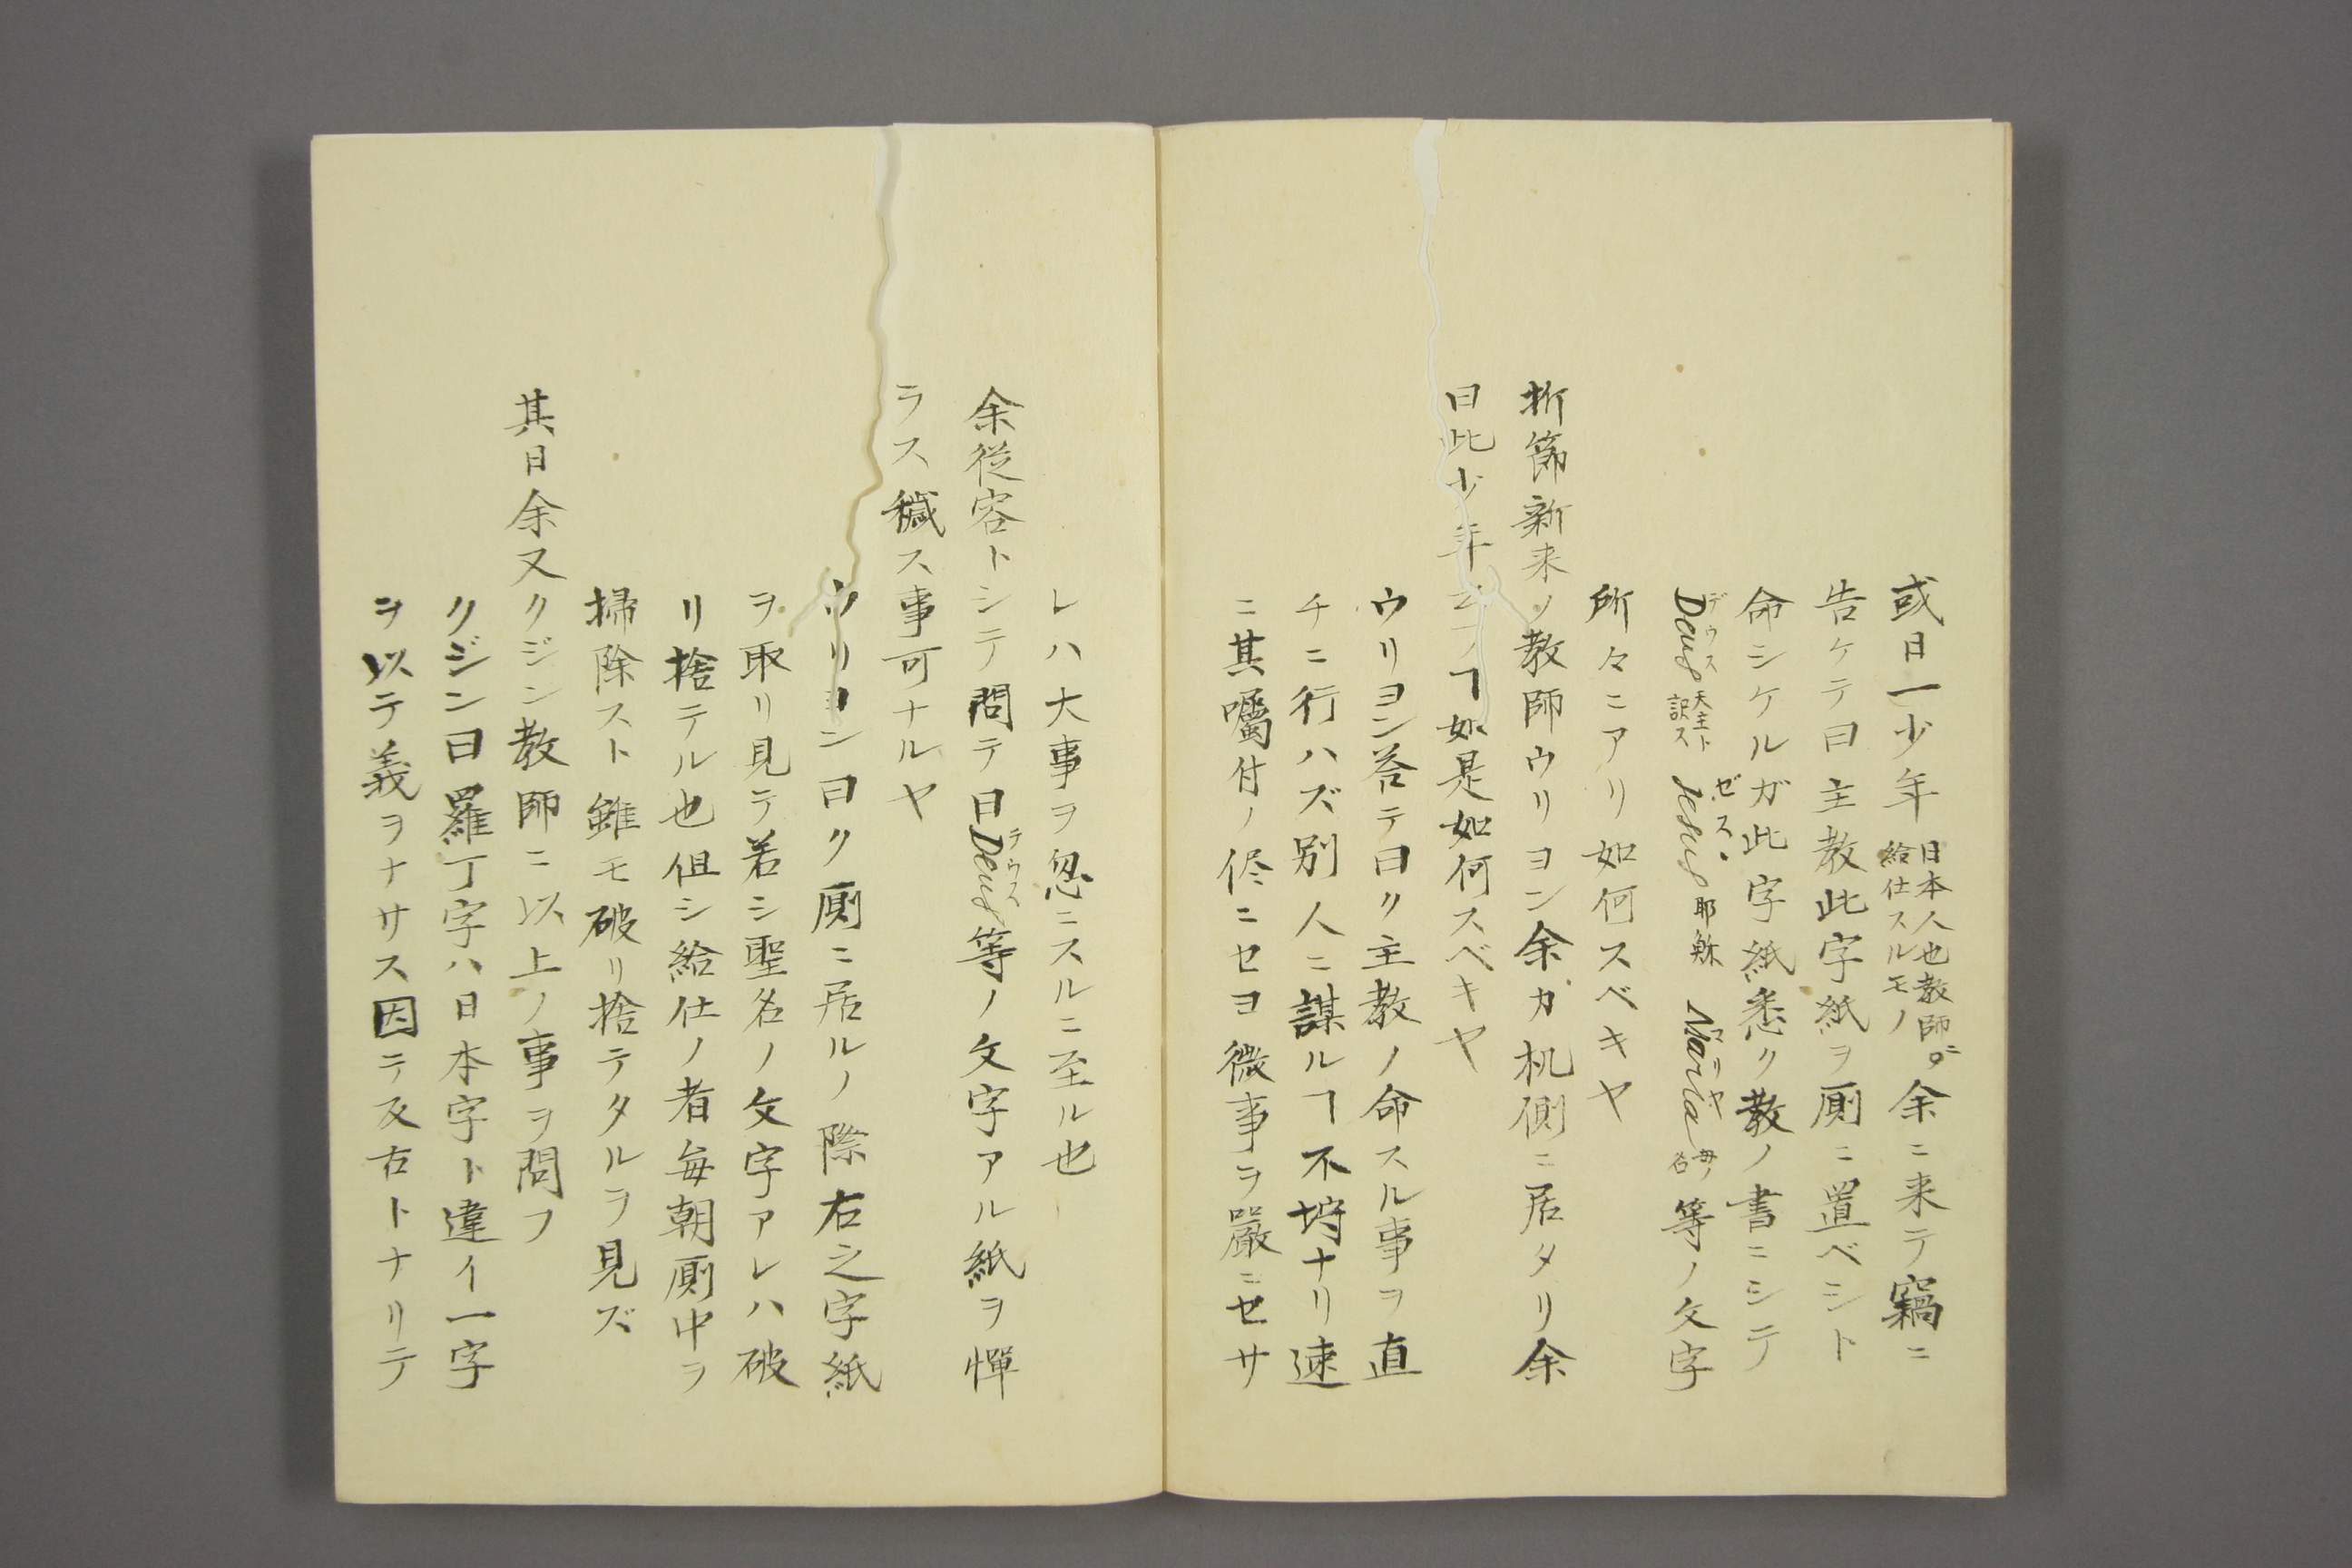 或日一少年日本人也教師ニ給仕スルモノ余ニ来テ竊ニ
告ケテ曰主教此字紙ヲ厠ニ置ベシト
命シケルガ此字紙悉ク散ノ書ニシテ
Deusデウス天主ト訳スJesusゼスス耶穌Mariaマリヤ母ノ名等ノ文字
所々ニアリ如何スベキヤ
折節新来ノ教師ウリヨン余カ机側ニ居タリ余
曰此少年ヿ如是如何スベキヤ
ウリヨン答テ曰ク主教ノ命スル事ヲ直
チニ行ハズ別人ニ謀ルヿ不埒ナリ速
ニ其囑付ノ侭ニセヨ微事ヲ嚴ニセサ
レハ大事ヲ忽ニスルニ至ル也
余従容トシテ問テ曰Deusテウス等ノ文字アル紙ヲ憚
ラス穢ス事可ナルヤ
ウリヨン曰ク厠ニ居ルノ際右之字紙
ヲ取リ見テ若シ聖名ノ文字アレハ破
リ捨テル也但シ給仕ノ者毎朝厠中ヲ
掃除スト雖モ破リ捨テタルヲ見ズ
其日余又クジン教師ニ以上ノ事ヲ問フ
クジン曰羅丁字ハ日本字ト違イ一字
ヲ以テ義ヲナサス因テ反古トナリテ